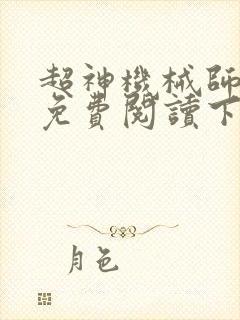 超神機械師
免費閱讀下
月色